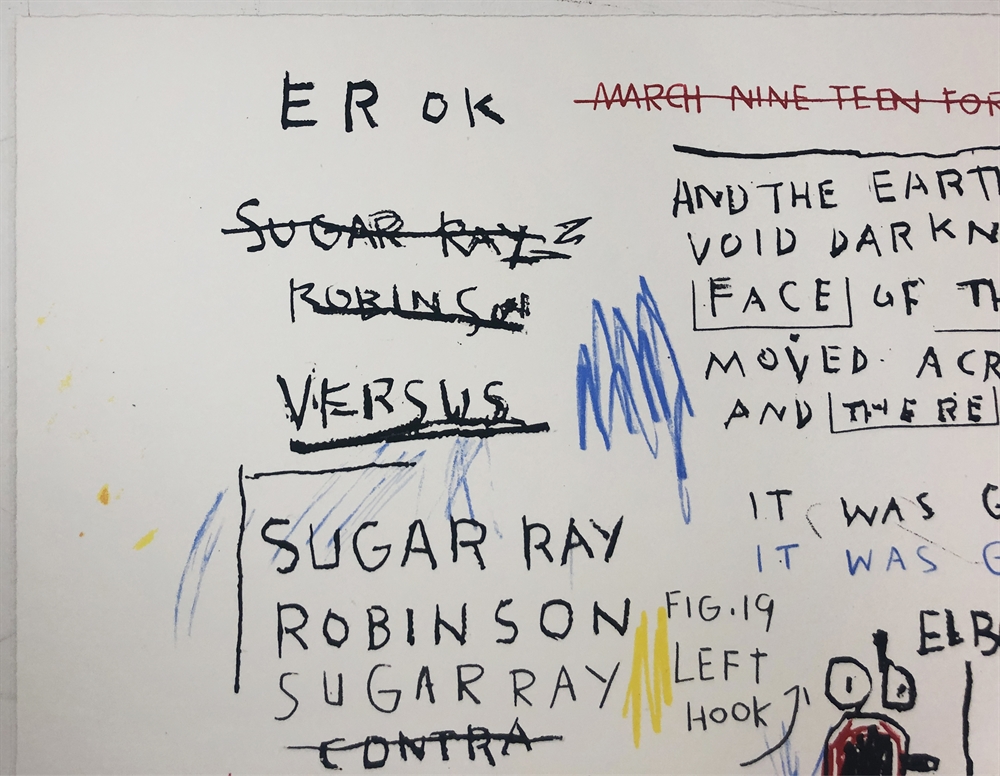 ER OK
SUGAR RAY
ROBINSON
VERSUS
SUGAR RAY
ROBINSON
SUGAR RAY
CONTRA
MARCH NINE TEEN FOR
AND THE EARTH
VOID DARKN
FACE OF TH
MOVED ACR
AND THERE
IT WAS G
IT WAS G
FIG.19
LEFT
HOOK
ELBA